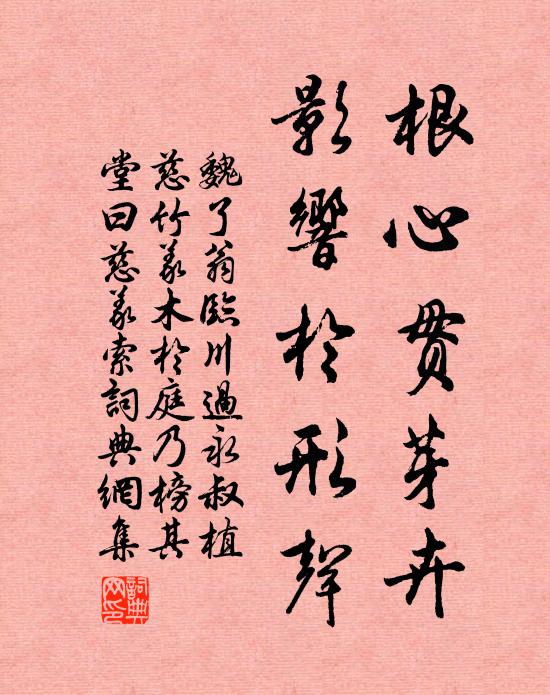 根心贯芽卉
影響於形聲
魏了翁臨川過永叔植
慈竹義木於庭乃榜其
堂曰慈義索詞典網集
詞典網印